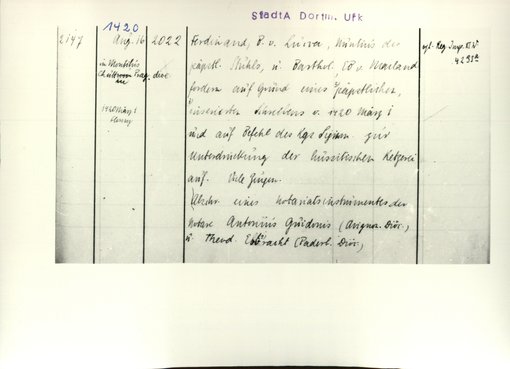 StadtA Dortm. Urk
1420
2147
Aug. 16
2022
Ferdinand, B. v. Lucca, Nuntius des
päpstl. Stuhls, u. Barthol. EB v. Mailand
fordern auf Grund eines päpstlichen,
inserierten Schreibens v. 1420 März 1
und auf Befehl des Kgs Sigism. zur
Unterdrückung der hussitischen Ketzerei
auf. Viele Zeugen.
(Abschr. eines Notariatsinstrumentes der
Notare Antonius Guidonis (Avignon. Diöz.)
u. Theod. Ebbracht (Paderb. Diöz.)
in Montibus
Prag. dioc.
1420 März 1
Florenz
vgl. Reg. Imp. XI N
4238a